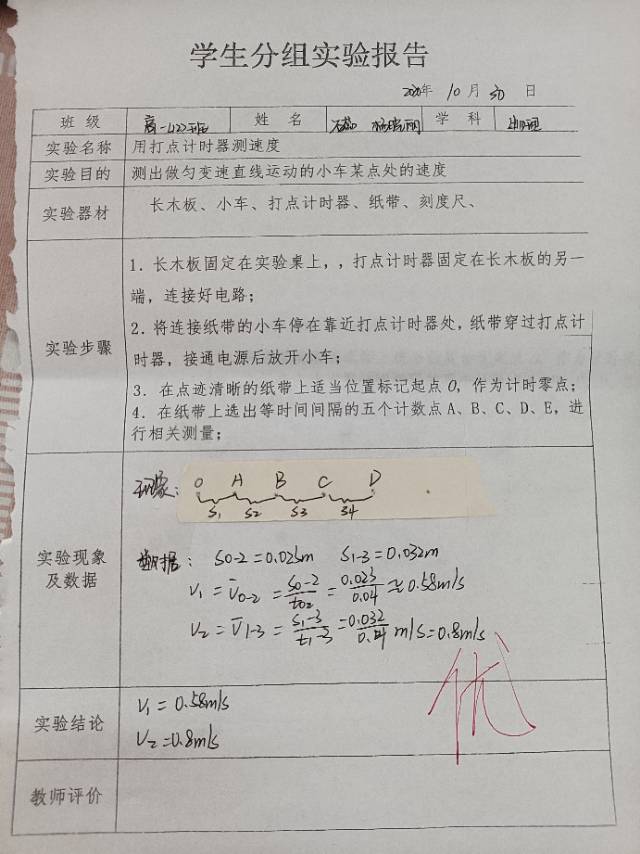 学生分组实验报告
2020年 10 月 30 日
班 级 高一422班 姓 名 学 科 物理
实验名称 用打点计时器测速度
实验目的 测出做匀变速直线运动的小车某点处的速度
实验器材 长木板、小车、打点计时器、纸带、刻度尺、
实验步骤
1. 长木板固定在实验桌上，，打点计时器固定在长木板的另一
端，连接好电路；
2. 将连接纸带的小车停在靠近打点计时器处，纸带穿过打点计
时器，接通电源后放开小车；
3. 在点迹清晰的纸带上适当位置标记起点 O，作为计时零点；
4. 在纸带上选出等时间间隔的五个计数点 A、B、C、D、E，进
行相关测量；
实验现象
及数据
现象：O A B C D
S1 S2 S3 S4
数据： S0-2=0.023m S1-3=0.032m
V1 = V̄0-2 = S0-2/t02 = 0.023/0.04 ≈ 0.58m/s
V2 = V̄1-3 = S1-3/t1-3 = 0.032/0.04 m/s=0.8m/s
优
实验结论
V1 = 0.58m/s
V2 =0.8m/s
教师评价